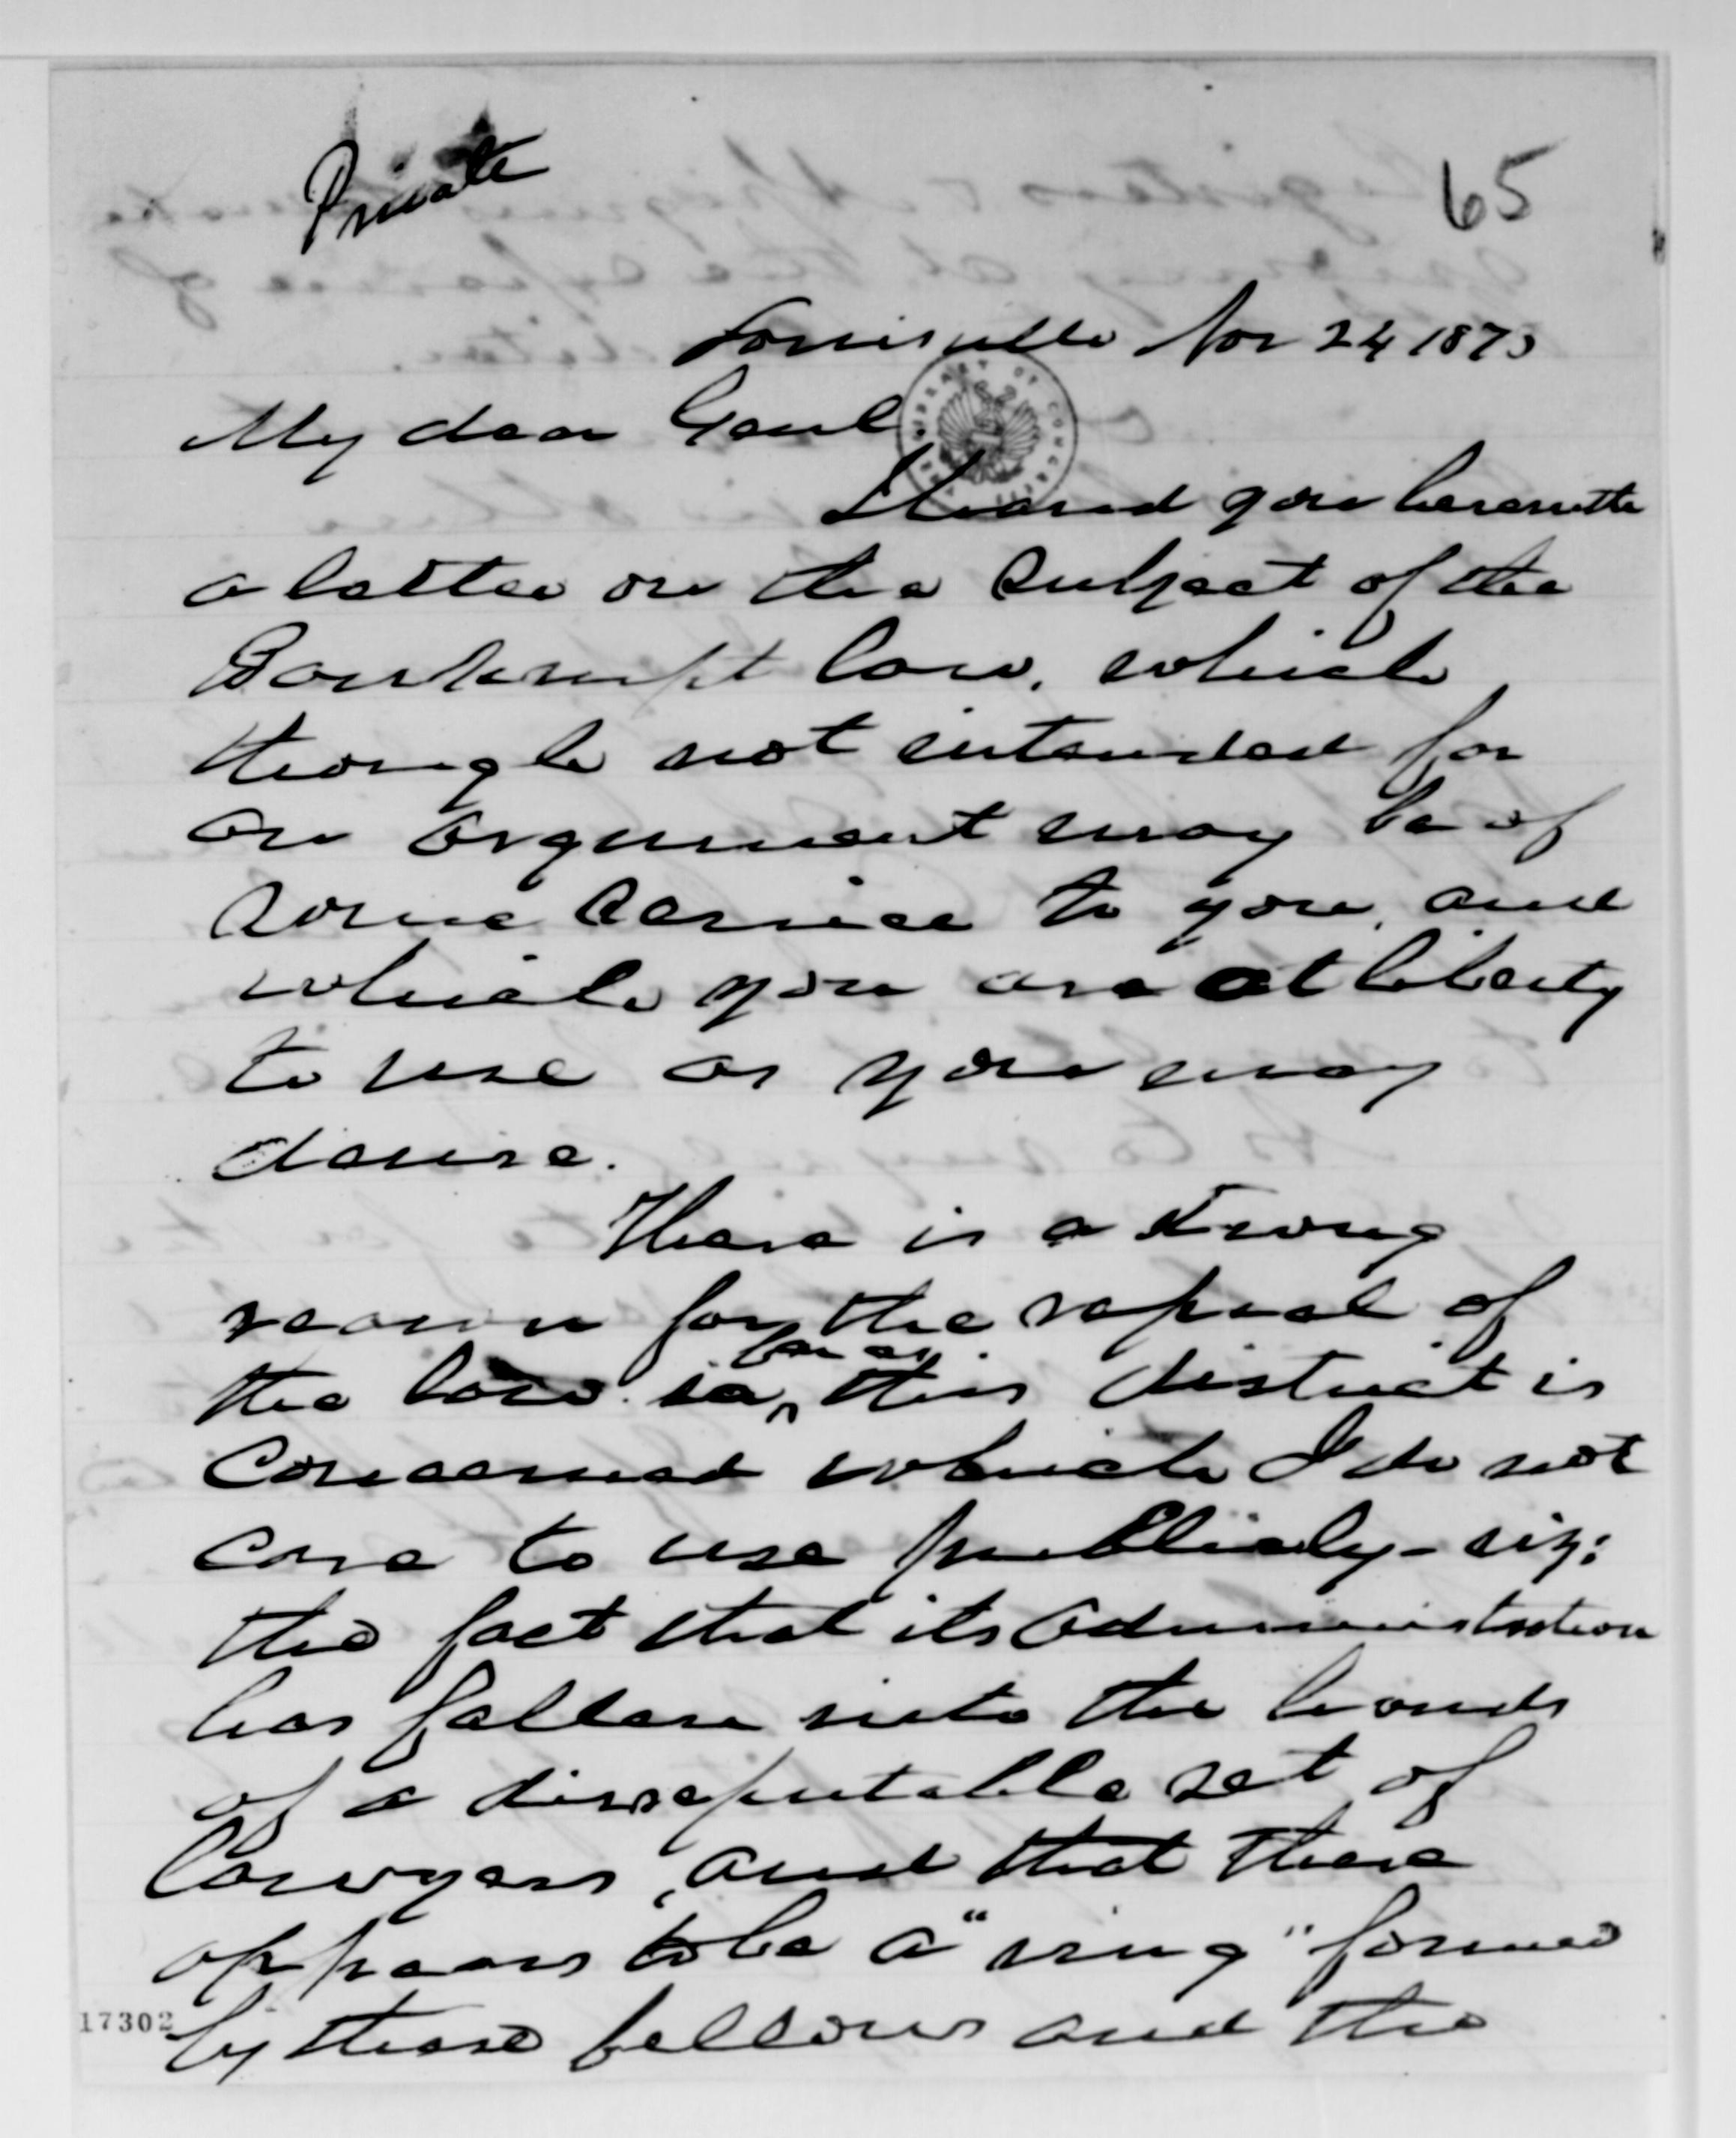 Private
65
Louisville Nov 24 1873
My dear Genl.
I hand you herewith
a letter on the subject of the
Bankrupt law, which
though not intended for
an argument may be of
some service to you, and
which you are at liberty
to use as you may
desire.
There is a strong
reason for the repeal of
the law so far as this district is
concerned which I do not
care to use publicly - viz:
the fact that its administration
has fallen into the hands
of a disreputable set of
lawyers, and that there
appears to be a "ring" formed
by these fellows and the
17302